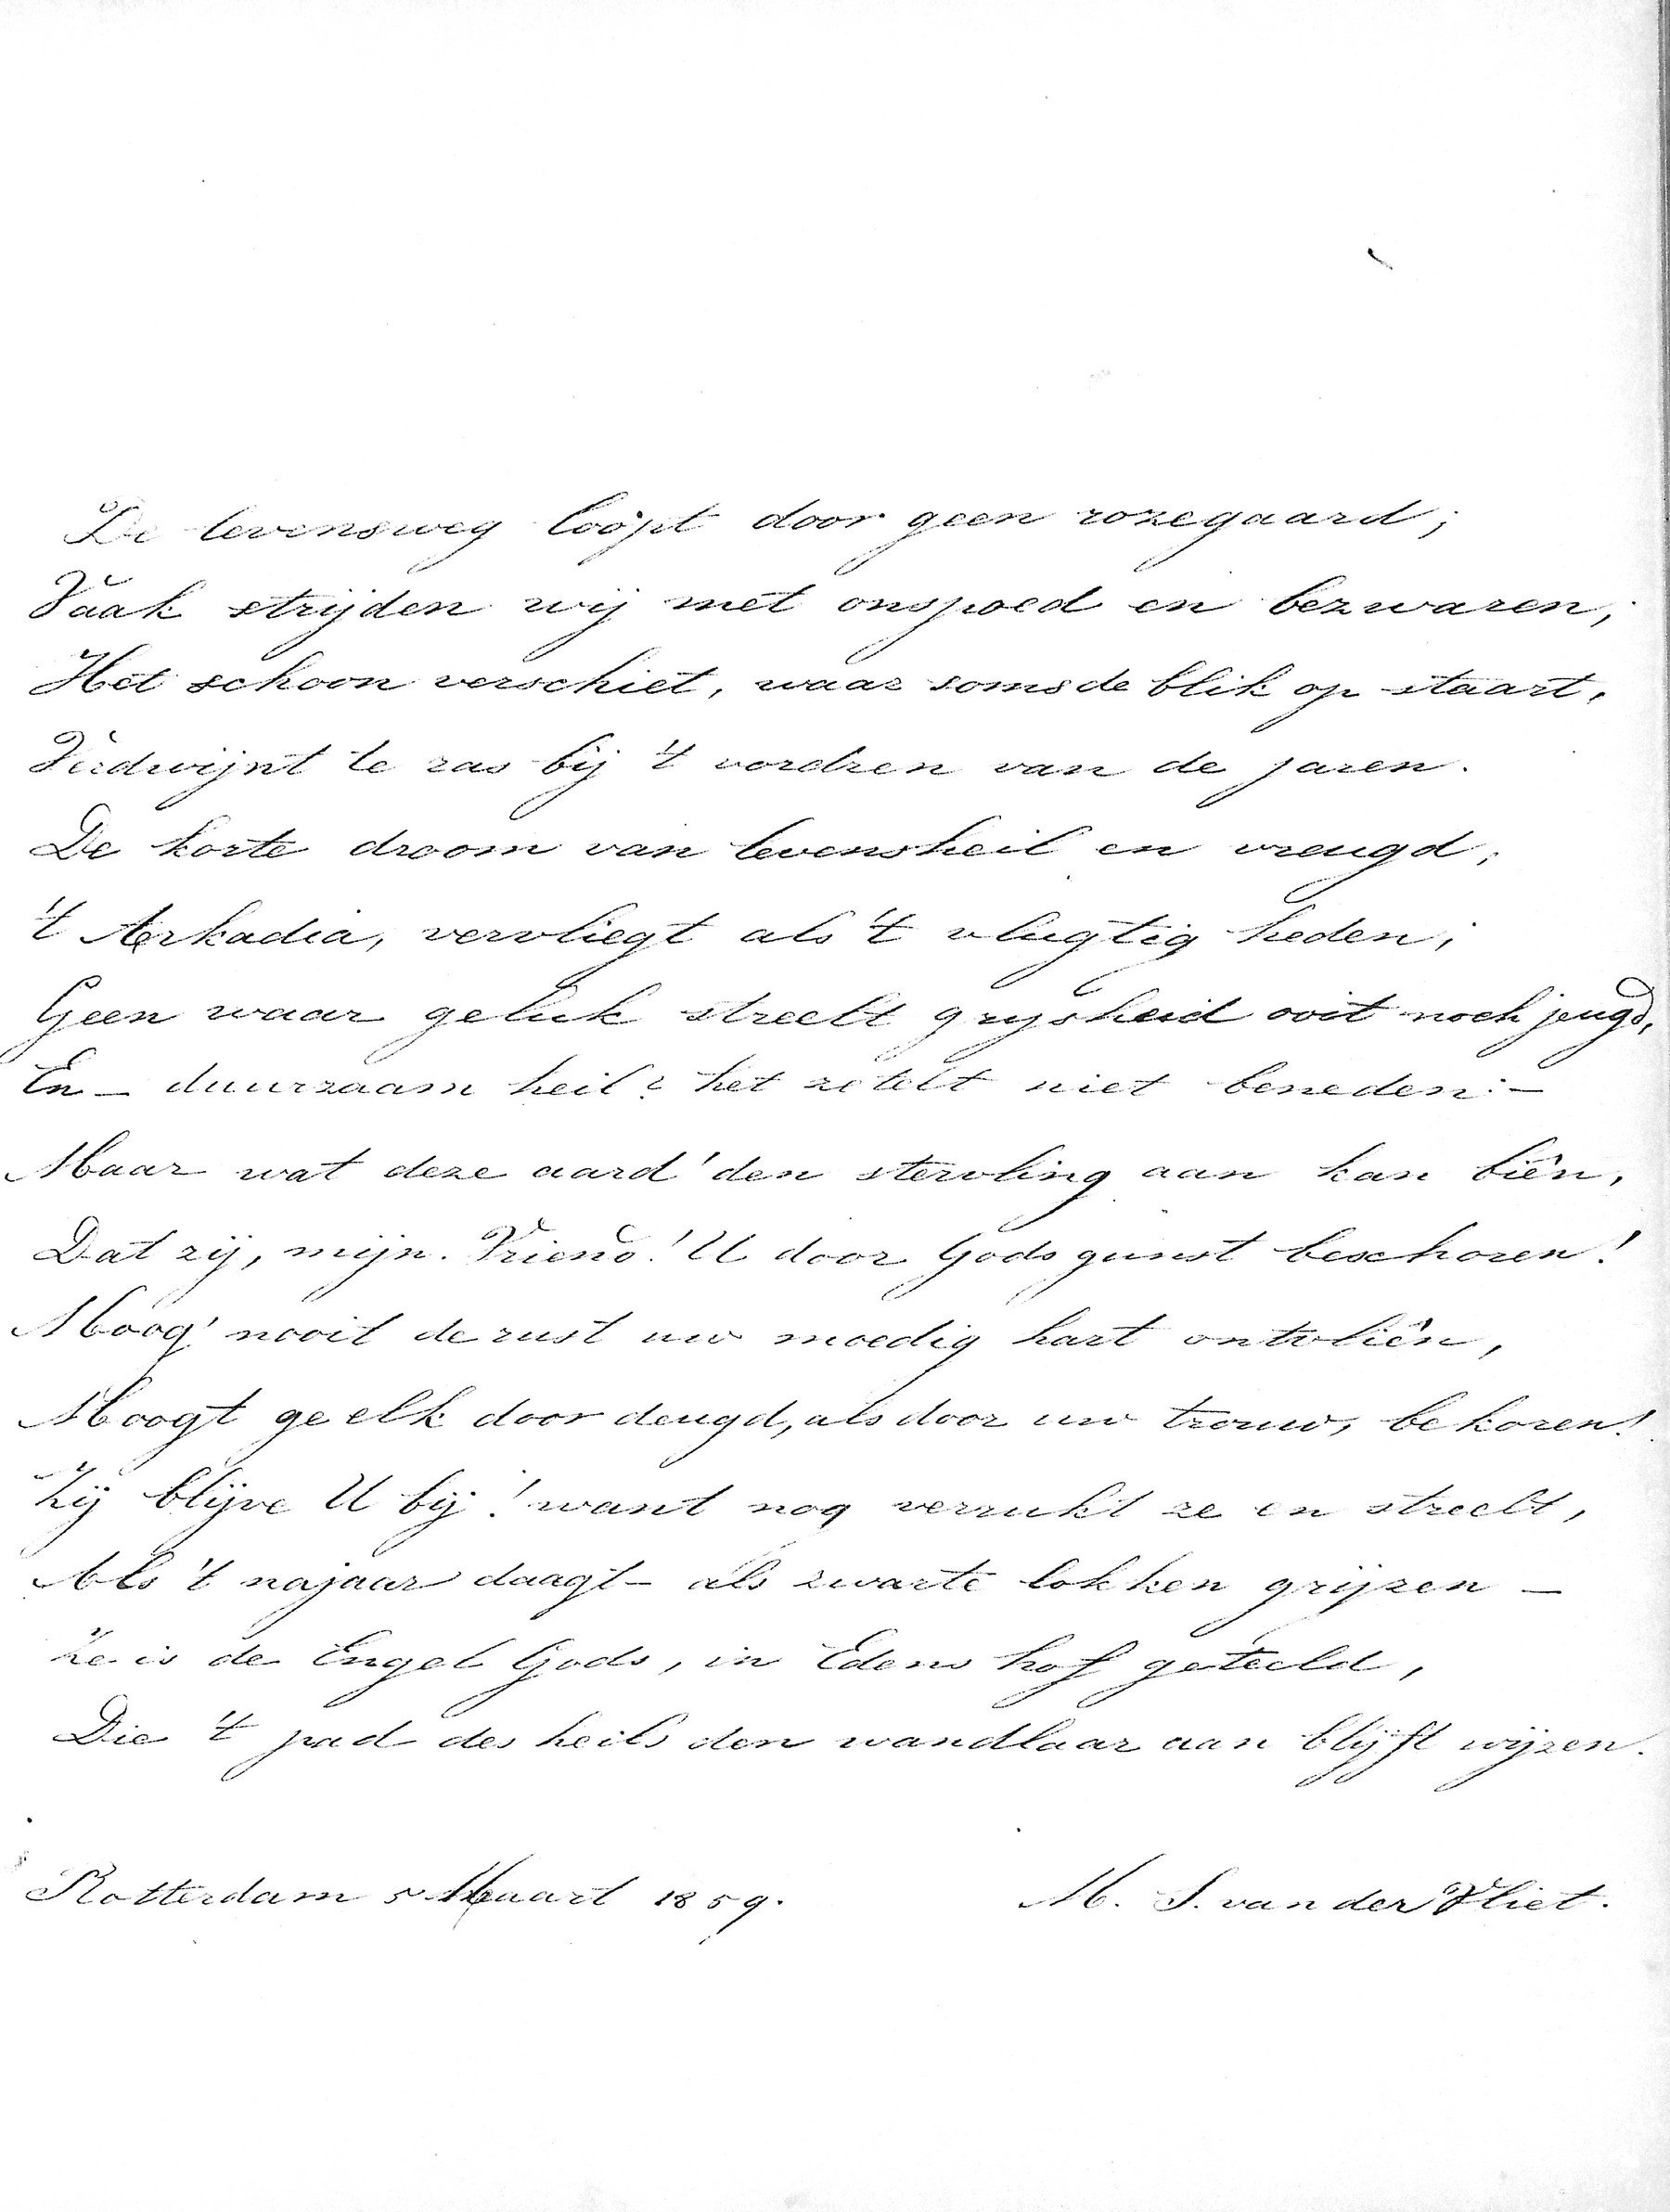 De levensweg loopt door geen rozegaard;
Vaak strijden wij met onspoed en bezwaren;
Het schoon verschiet, waar soms de blik op staart,
Verdwijnt te ras bij 't vordren van de jaren.
De korte droom van levensheil en vreugd,
't Arkadia, vervliegt als 't vlugtig heden;
Geen waar geluk streelt grijsheid ooit noch jeugd,
En – duurzaam heil? het zetelt niet beneden: –
Maar wat deze aard' den sterv'ling aan kan biên,
Dat zij, mijn Vriend! U door Gods gunst beschoren!
Moog' nooit de rust uw moedig hart ontvliên,
Moogt ge elk door deugd, als door uw trouw, bekoren!
Zij blijve U bij! want nog verrukt ze en streelt,
Als 't najaar daagt – als zwarte lokken grijzen –
Ze is de Engel Gods, in Edens hof geteeld,
Die 't pad des heils den wandlaar aan blijft wijzen.
Rotterdam 5 Maart 1859.
M. S. van der Vliet.